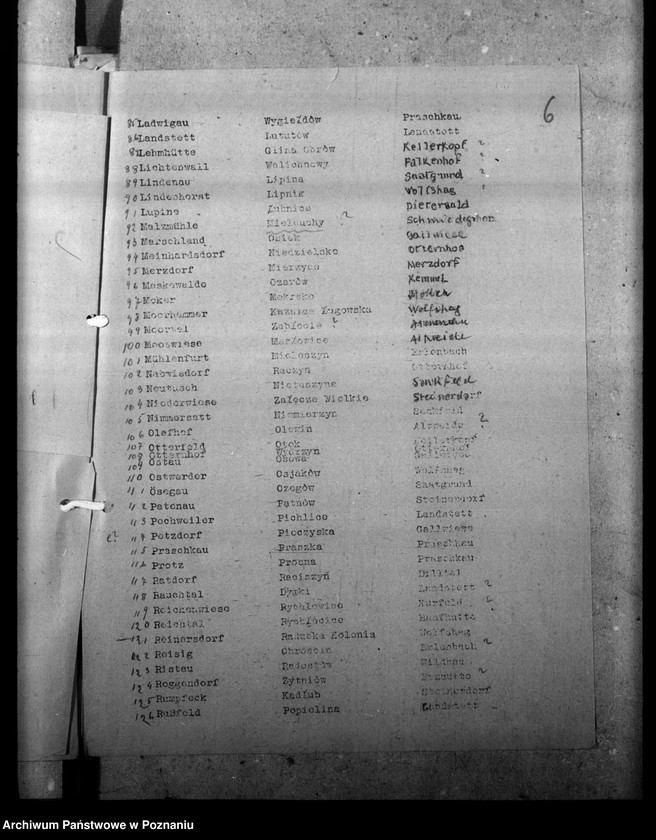 6
85 Ladwigau Wygiełdów Praschkau
86 Landstett Lututów Landstett
87 Lehmhütte Glina Obrów Kellerkopf ?
88 Lichtenwall Walichnowy Falkenhof
89 Lindenau Lipina Saatgrund ?
90 Lindenhorst Lipnik Wolfshag
91 Lupine Łubnice Dieterwald
92 Malzmühle Mieleuchy ? Schmiedegrben
93 Marschland Osiek Gallwiese
94 Meinhardsdorf Niedzielsko Otternhof
95 Merzdorf Mierzyce Merzdorf
96 Meskewalde Ożarów Kemmel
97 Moker Mokrsko
98 Moorhammer Kuźnica Żagowska Wolfshag
99 Moortal Zabłocie ?
100 Mooswiese Markowice Altweide
101 Mühlenfurt Mieleszyn Erlenbach
102 Nabwisdorf Raczyn Otternhof
103 Neutusch Nietuszyna Sandfeld
104 Niederwiese Załęcze Wielkie Steinerdorf
105 Nimmersatt Niemierzyn Sandfeld
106 Olefhof Olewin Altweide ?
107 Otterfeld Otok Kellerkopf
108 Otternhof Wierzyn Otternhof
109 Ostau Osowa Gallwiese
110 Ostwerder Osjaków Wolfshag
111 Ösegau Ożegów Saatgrund
112 Patenau Pątnów Steinerdorf
113 Pechweiler Pichlice Landstett
114 Petzdorf Pieczyska Gallwiese
115 Praschkau Praszka Praschkau
116 Protz Procna Praschkau
117 Ratdorf Raciszyn Dilltal
118 Rauchtal Dymki Landstett ?
119 Reichenwiese Rychłowice Kurfeld ?
120 Reichtal Rychłocice Hanfhütte
121 Reinersdorf Raduska Kolonia Wolfshag
122 Reisig Chróścin Erlenbach ?
123 Ristau Radostów Wildnau
124 Roggendorf Żytniów ?
125 Rumpfeck Kadłub Steinerdorf
126 Rußfeld Popielina Landstett
Archiwum Państwowe w Poznaniu